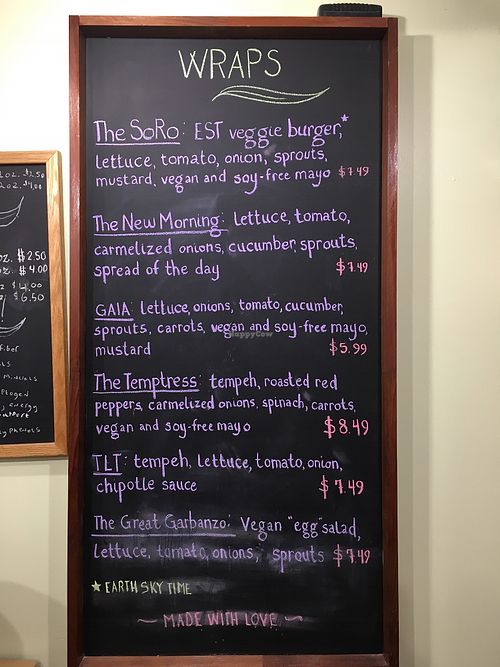 WRAPS
The SoRo: EST veggie burger,*
lettuce, tomato, onion, sprouts,
mustard, vegan and soy-free mayo $7.49
The New Morning: lettuce, tomato,
carmelized onions, cucumber, sprouts,
spread of the day $7.49
GAIA: lettuce, onions, tomato, cucumber,
sprouts, carrots, vegan and soy-free mayo,
mustard $5.99
The Temptress: tempeh, roasted red
peppers, carmelized onions, spinach, carrots,
vegan and soy-free mayo $8.49
TLT: tempeh, lettuce, tomato, onion,
chipotle sauce $7.49
The Great Garbanzo: Vegan "egg" salad,
lettuce, tomato, onions, sprouts $7.49
★ EARTH SKY TIME
~ MADE WITH LOVE ~
HappyCow
$2.50
$4.00
$2.50
$4.00
$4.00
$6.50